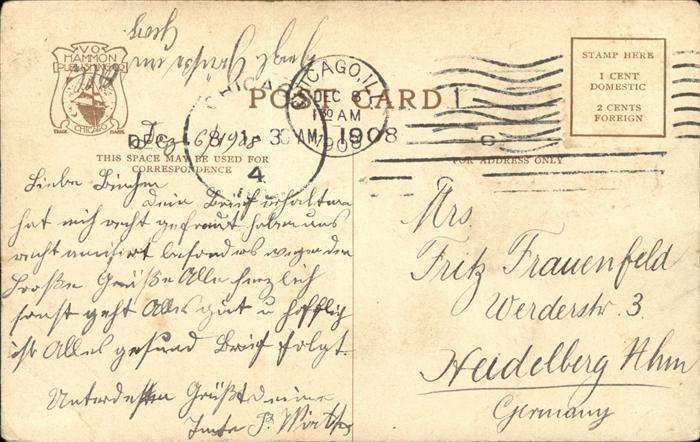 V.O.
HAMMON
PUBLISHING CO.
CHICAGO
TRADE
MARK
POST CARD
CHICAGO, ILL
DEC 8
1 30 AM
1908
CHICAGO
DEC 8 1-30 AM 1908
4
Dez 6 1908
THIS SPACE MAY BE USED FOR
CORRESPONDENCE
FOR ADDRESS ONLY
STAMP HERE
1 CENT
DOMESTIC
2 CENTS
FOREIGN
Liebe
Dein Brief erhalten
hat mich recht gefreut haben uns
recht amüsirt besonders wegen den
Grüße Alle herzlich
sonst geht Alles gut u hoffentlich
ist Alles gesund Brief folgt.
Unterdessen Grüßt deine
Tante
Mrs.
Fritz Frauenfeld
Werderstr. 3.
Heidelberg
Germany